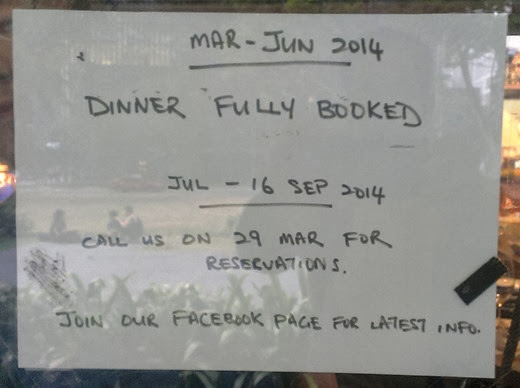 MAR - JUN 2014
DINNER FULLY BOOKED
JUL - 16 SEP 2014
CALL US ON 29 MAR FOR
RESERVATIONS.
JOIN OUR FACEBOOK PAGE FOR LATEST INFO.